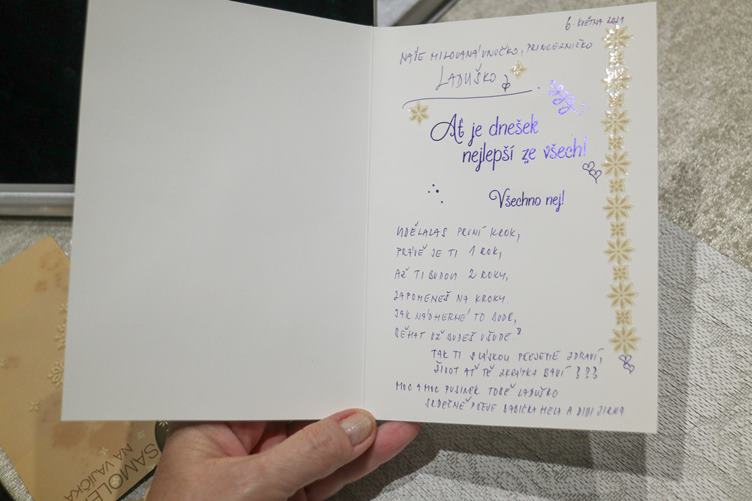 6. KVĚTNA 2021
NAŠE MILOVANÁ VNUČKO, PRINCEZNIČKO
LADUŠKO
Ať je dnešek
nejlepší ze všech!
Všechno nej!
UDĚLALAS PRVNÍ KROK,
PRÁVĚ JE TI 1 ROK,
AŽ TI BUDOU 2 ROKY,
ZAPOMENEŠ NA KROKY.
JAK NÁDHERNÉ TO BUDE,
BĚHAT UŽ BUDEŠ VŠUDE.
TAK TI S LÁSKOU PŘEJEME ZDRAVÍ,
ŽIVOT AŤ TĚ ZKRÁTKA BAVÍ !!!
MOC A MOC PUSINEK TOBĚ LADUŠKO
SRDEČNĚ BABIČKA A DĚDA JIRKA
SAMOLE
NA VAJÍČKA